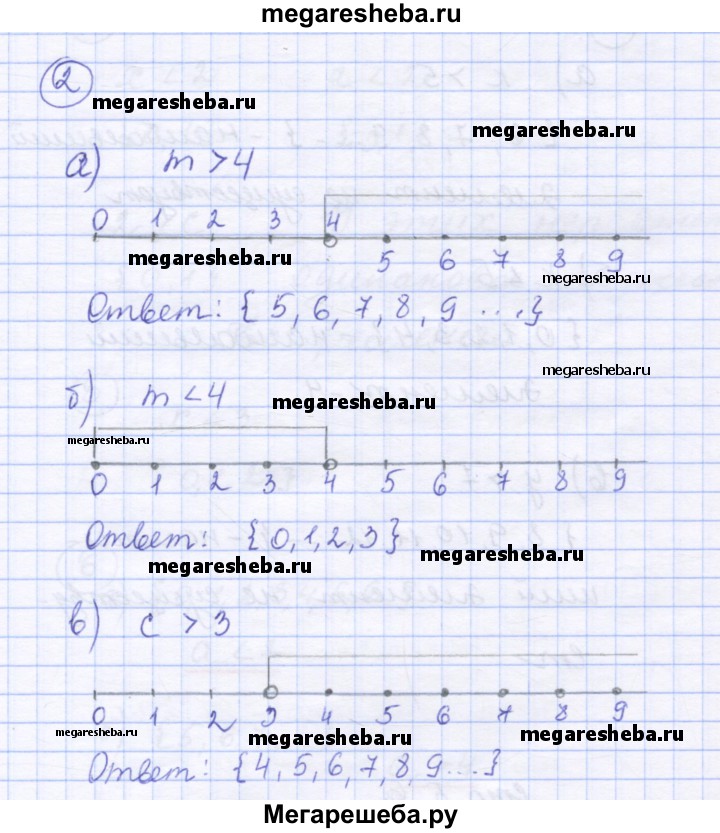 megaresheba.ru
2
megaresheba.ru
megaresheba.ru
а) m > 4
0 1 2 3 4
5 6 7 8 9
megaresheba.ru
megaresheba.ru
Ответ: { 5, 6, 7, 8, 9 ...}
megaresheba.ru
б) m < 4
megaresheba.ru
megaresheba.ru
0 1 2 3 4 5 6 7 8 9
Ответ: {0, 1, 2, 3}
megaresheba.ru
megaresheba.ru
в) c > 3
0 1 2 3 4 5 6 7 8 9
megaresheba.ru
megaresheba.ru
megaresheba.ru
Ответ: {4, 5, 6, 7, 8, 9...}
Мегарешеба.ру